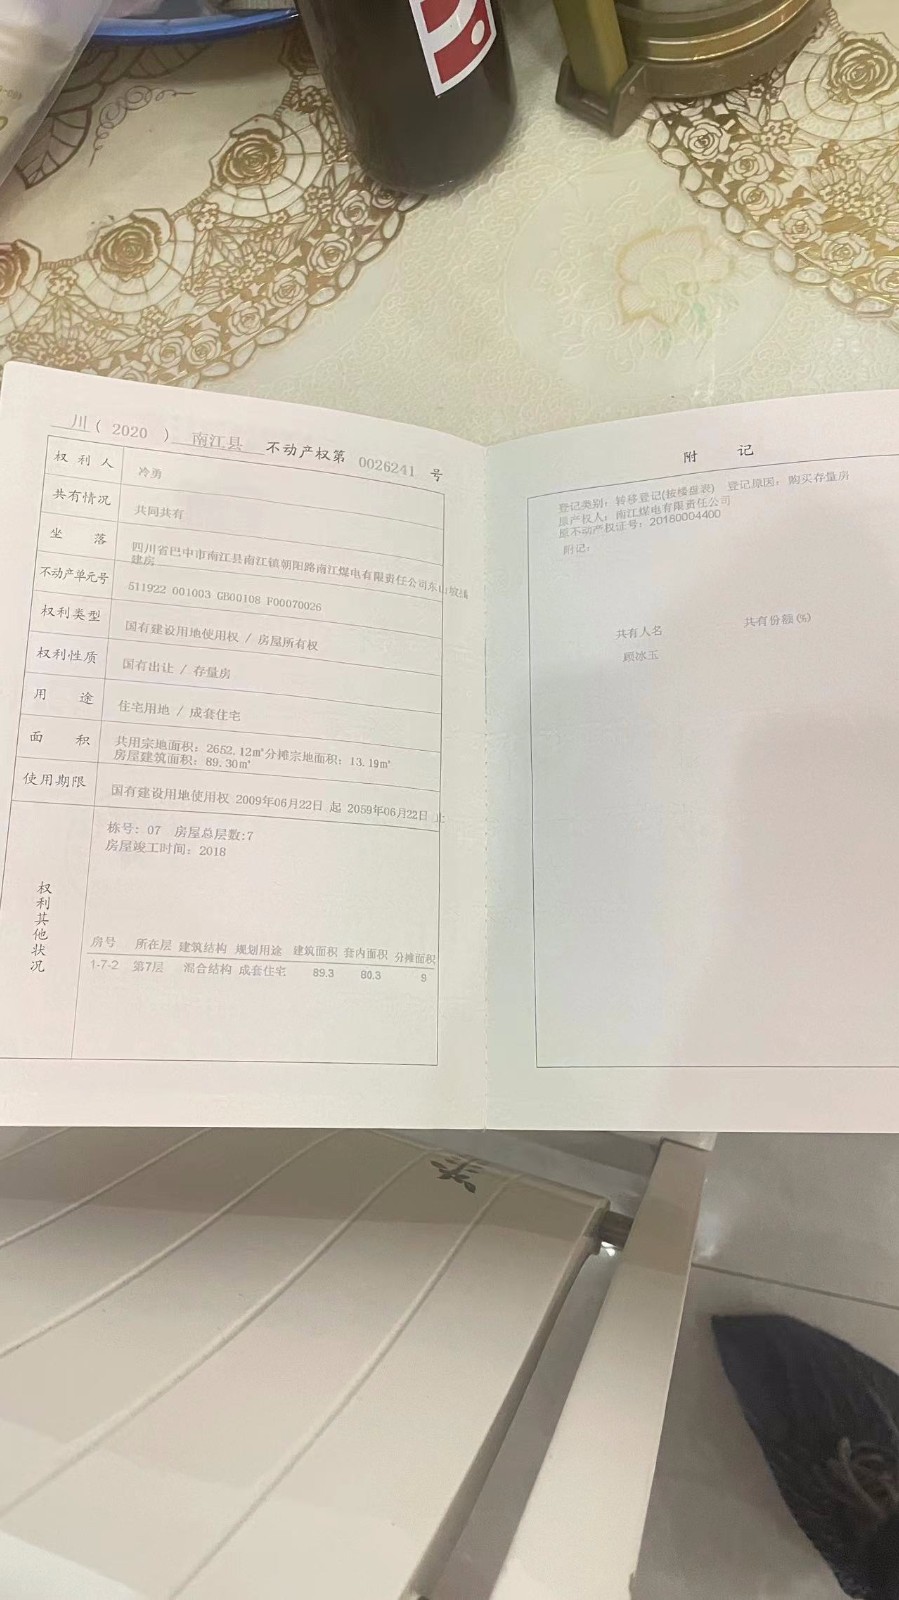 川（ 2020 ） 南江县 不动产权第 0026241 号
权利人 冷勇
共有情况 共同共有
坐落 四川省巴中市南江县南江镇朝阳路南江煤电有限责任公司东山坡线
建房
不动产单元号 511922 001003 GB00108 F00070026
权利类型 国有建设用地使用权 / 房屋所有权
权利性质 国有出让 / 存量房
用途 住宅用地 / 成套住宅
面积 共用宗地面积：2652.12㎡分摊宗地面积：13.19㎡
房屋建筑面积：89.30㎡
使用期限 国有建设用地使用权 2009年06月22日 起 2059年06月22日 止
权利其他状况
栋号：07 房屋总层数:7
房屋竣工时间：2018
房号 所在层 建筑结构 规划用途 建筑面积 套内面积 分摊面积
1-7-2 第7层 混合结构 成套住宅 89.3 80.3 9
附记
登记类别：转移登记(按楼盘表) 登记原因：购买存量房
原产权人：南江煤电有限责任公司
原不动产权证号：20180004400
附记：
共有人名 共有份额(%)
顾冰玉